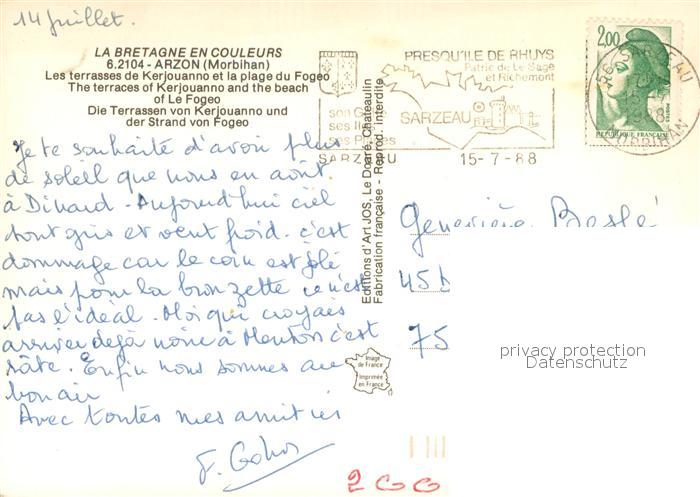 14 Juillet.
LA BRETAGNE EN COULEURS
6.2104 - ARZON (Morbihan)
Les terrasses de Kerjouanno et la plage du Fogeo
The terraces of Kerjouanno and the beach
of Le Fogeo
Die Terrassen von Kerjouanno und
der Strand von Fogeo
Je te souhaite d'avoir plus
de soleil que nous en août
à Dinard. Aujourd'hui ciel
tout gris et vent froid. c'est
dommage car le coin est joli
mais pour la bronzette ce n'est
pas l'idéal. Moi qui croyais
arriver déjà noire à Menton c'est
râté. Enfin nous sommes au
bon air
Avec toutes mes amitiés
Editions d'Art JOS, Le Doaré, Chateaulin
Fabrication française - Reprod. interdite
Image
de France
Imprimée
en France
PRESQU'ILE DE RHUYS
Patrie de Le Sage
et Richemont
son G
ses Il
SARZEAU
SARZEAU 15-7-88
2,00
REPUBLIQUE FRANÇAISE
56 SARZEAU
MORBIHAN
Geneviève
45
75
privacy protection
Datenschutz
200